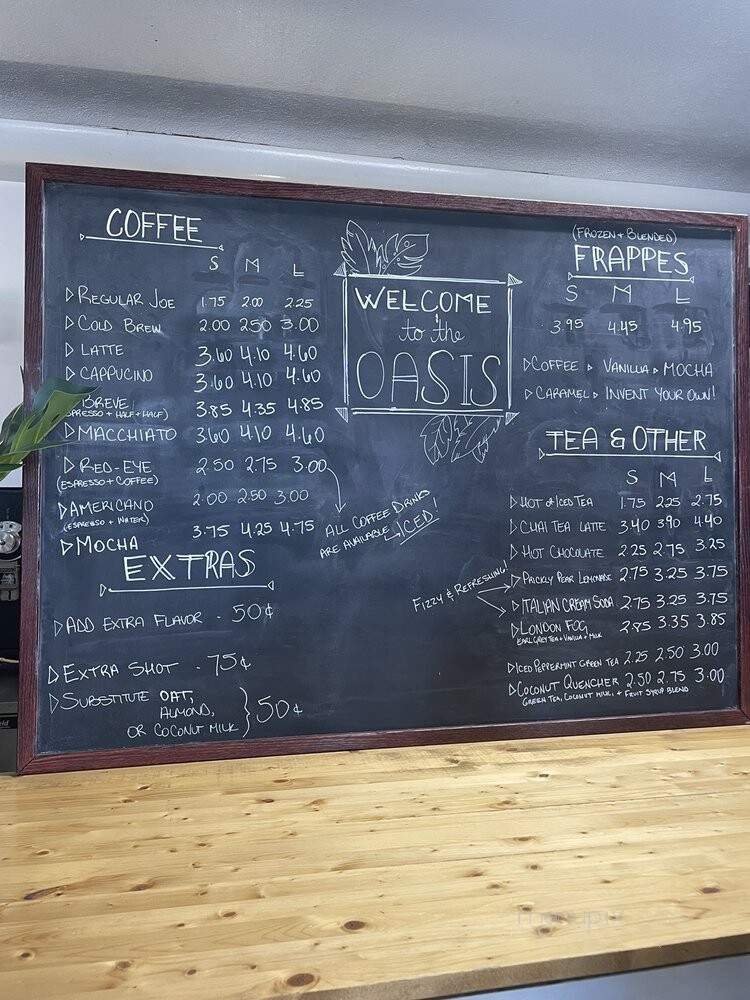 COFFEE
S M L
REGULAR JOE 1.75 2.00 2.25
COLD BREW 2.00 2.50 3.00
LATTE 3.60 4.10 4.60
CAPPUCINO 3.60 4.10 4.60
BREVE 3.85 4.35 4.85
(ESPRESSO + HALF + HALF)
MACCHIATO 3.60 4.10 4.60
RED-EYE 2.50 2.75 3.00
(ESPRESSO + COFFEE)
AMERICANO 2.00 2.50 3.00
(ESPRESSO + WATER)
MOCHA 3.75 4.25 4.75
ALL COFFEE DRINKS
ARE AVAILABLE ICED!
EXTRAS
ADD EXTRA FLAVOR - 50¢
EXTRA SHOT - 75¢
SUBSTITUTE OAT,
ALMOND,
OR COCONUT MILK } 50¢
WELCOME
to the
OASIS
(FROZEN + BLENDED)
FRAPPES
S M L
3.95 4.45 4.95
COFFEE VANILLA MOCHA
CARAMEL INVENT YOUR OWN!
TEA & OTHER
S M L
HOT or ICED TEA 1.75 2.25 2.75
CHAI TEA LATTE 3.40 3.90 4.40
HOT CHOCOLATE 2.25 2.75 3.25
FIZZY & REFRESHING!
PRICKLY PEAR LEMONADE 2.75 3.25 3.75
ITALIAN CREAM SODA 2.75 3.25 3.75
LONDON FOG 2.85 3.35 3.85
EARL GREY TEA + VANILLA + MILK
ICED PEPPERMINT GREEN TEA 2.25 2.50 3.00
COCONUT QUENCHER 2.50 2.75 3.00
GREEN TEA, COCONUT MILK, + FRUIT SYRUP BLEND